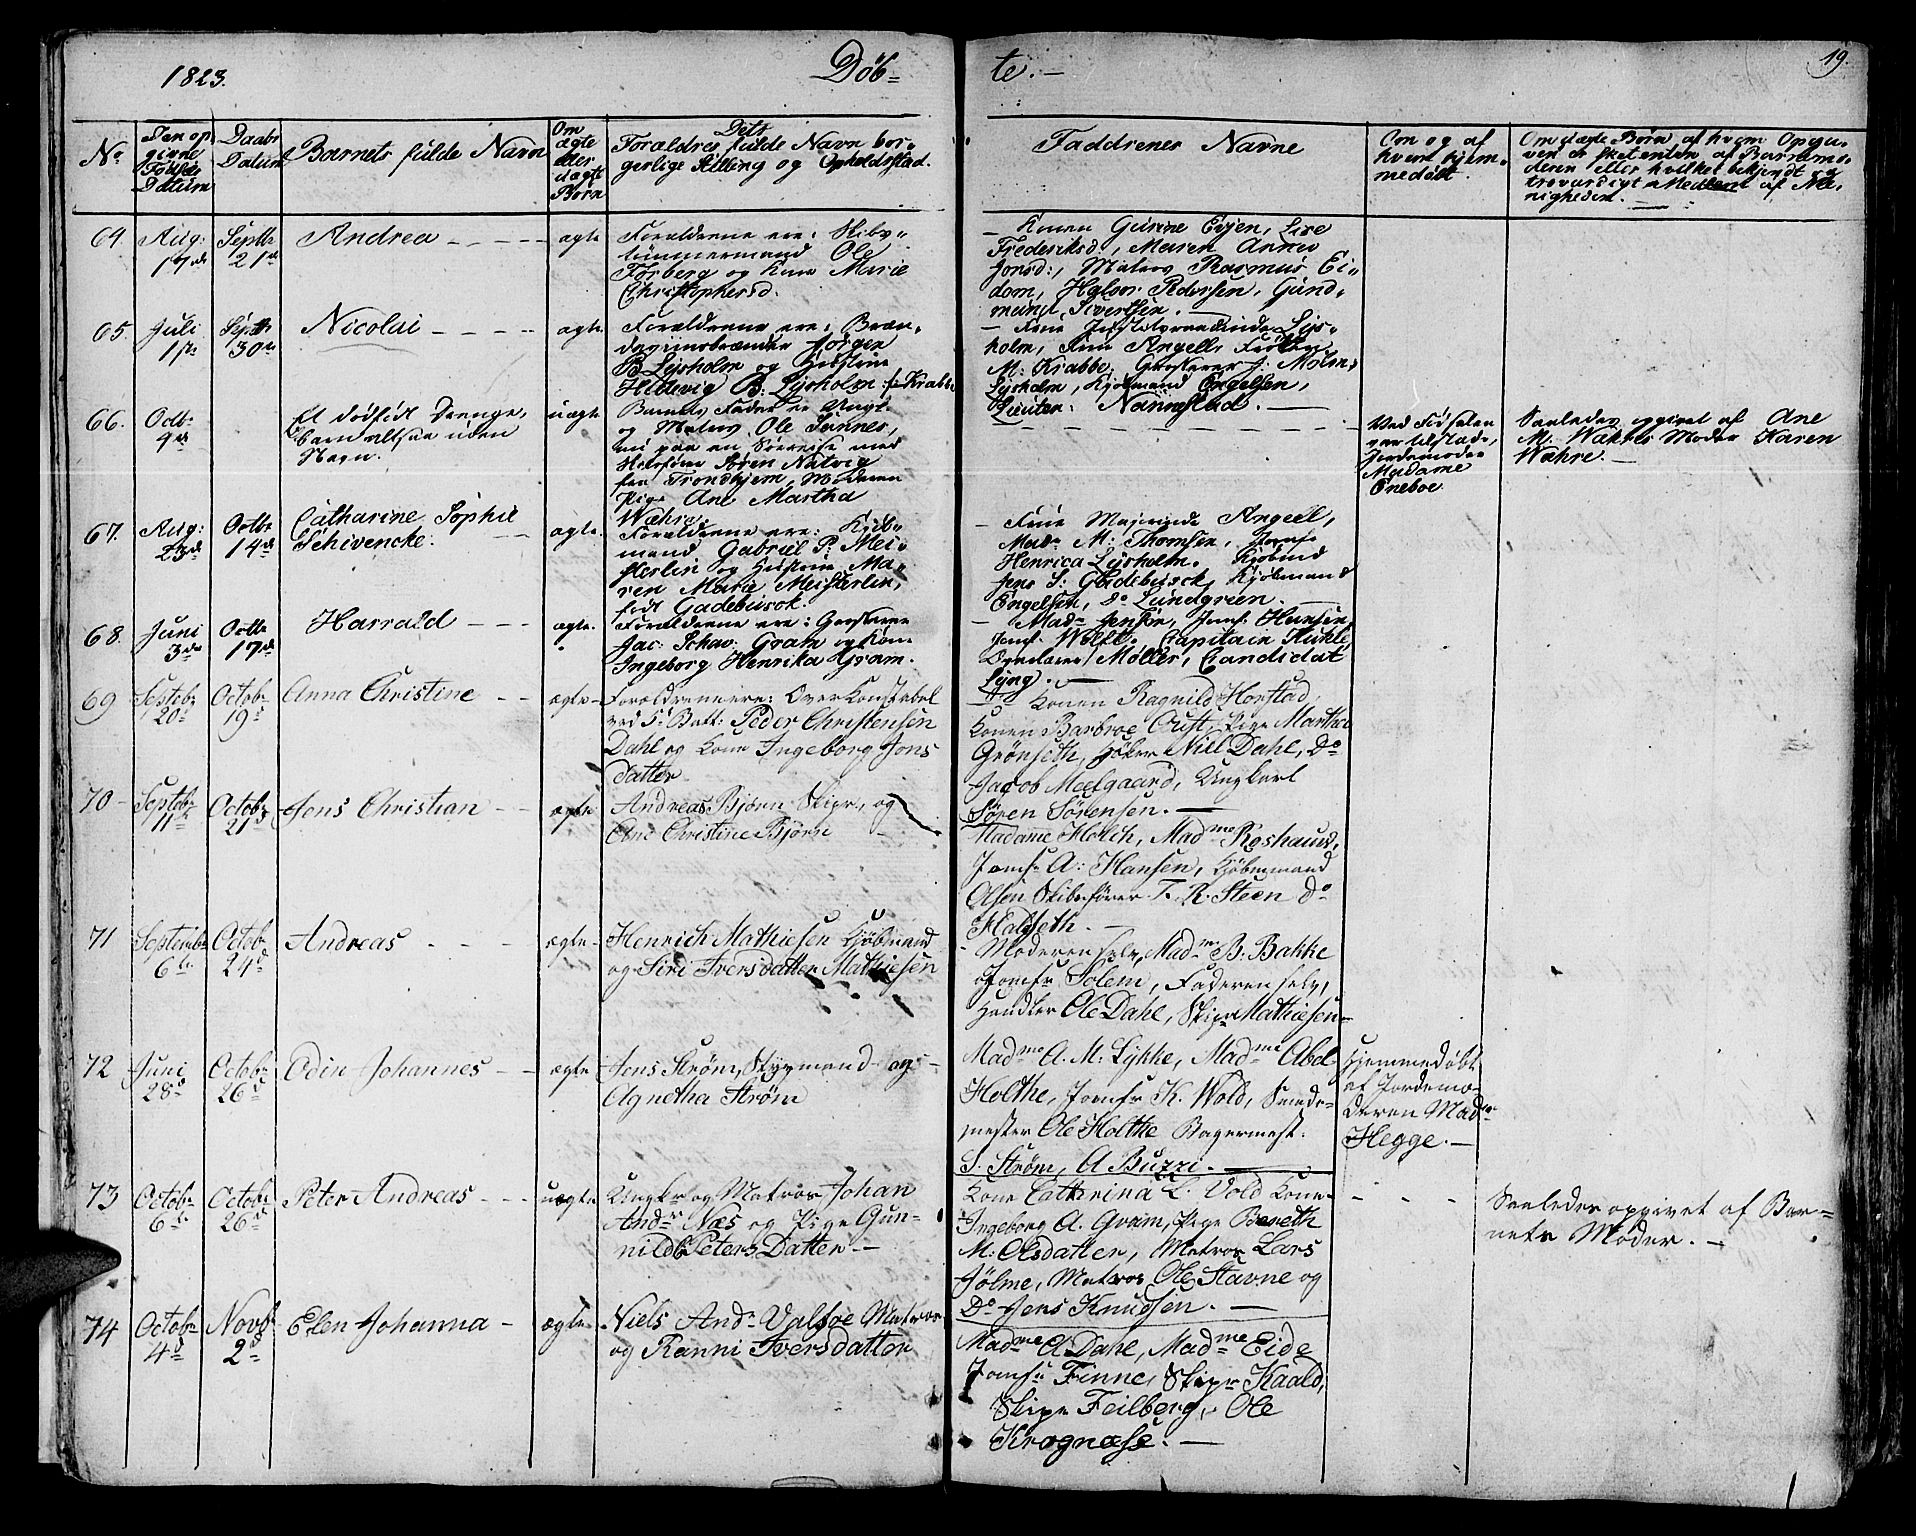 1823.
Døb-
te.-
19.
No
Den op
givne
Fødsels
Datum
Daabs
Datum
Barnets fulde Navn
Om
ægte
eller
uægte
Børn
Dets
Forældres fulde Navn bor-
gerlige Stilling og Opholdsstad.
Faddrenes Navne
Om og af
hvem hjem-
medøbt.
Om uægte Børn, af hvem Opga-
ven er skeet enten af Barnemo-
deren eller hvilket bekjendt og
troværdigt Medlem af Me-
nigheden.
64. Aug: 17de Septbr 21de Andrea - - - - - ægte
Forældrene ere: Skibs-
tømmermand Ole
Forberg og Kone Marie
Christophersd.
- Konen Gurine Evjen, Lise
Frederiksd., Maren Anna
Jonsd:, Matros Rasmus Ei-
dom, Halvor Pedersen, Gund-
mund Sivertsen. -
65. Juli 1ste Septbr 30te Nicolai - - - - - ægte
Forældrene ere: Bræn-
deviinsbrænder Jörgen
B. Lysholm og Hustrue
Hedevig B: Lysholm f. Krabbe
- Frue Lys-
holm, Frue Angell, Frøken
M: Krabbe, Grosserer J: Molm,
Lysholm, Kjöbmand Engelsen,
Lieuten: Nannestad. -
66. Octbr 9de Et dødfødt Drenge-
barn altsaa uden
Navn. uægte
Barnets Fader er Ungk.
og Matros Ole Sannes,
nu paa en Söereise med
Skibsförer Sören Natvig
fra Trondhjem, Moderen
Pige Ane Martha
Wæhre.
Ved Fødselen
var tilstede,
Jordemoder
Madame
Oneboe
Saaledes opgivet af Ane
M. Wæhres Moder Karen
Wæhre. -
67. Aug: 23de Octbr 14de Catharine Sophie
Schivencke. ægte
Forældrene ere: Kjöb-
mand Gabriel P: Mei-
sterlin og Hustrue Ma-
ren Marie Meisterlin,
født Gadebusck.
- Frue Majorinde Angell,
Made M: Thomsen, Jomf:
Henrica Lysholm. Kjöbmd
Jens S: Gadebusck, Kjöbmand
Engelsen, Do Lundgreen. -
68. Juni 3de Octbr 17de Harrald - - - ægte.
Forældrene ere: Grosserer
Jac: Schav: Gram og Kone
Ingeborg Henrika Gram.
- Made Jensen, Jomf: Hansen,
Jomf: Wolff. Capitain Kuhle
Møller, Candidat
Lyng. -
69 Septbr 20de Octobr 19de Anna Christine - - ægte-
Forældrene ere: Over Konstabel
ved F: Batt: Peder Christensen
Dahl og Kone Ingeborg Jons
datter
- Konen Ragnild Horstad,
Konen Barbroe Oust, Pige Marthe
Grönseth, Höker Niel Dahl, Do
Jacob Meelgaard, Ungkarl
Sören Sørensen. -
70- Septobr 11te Octobr 21de Jens Christian - - ægte
Andreas Bjørn Skipr, og
Ane Christine Bjørn
Madame Holch, Madme Roshauw,
Jomfr A: Hansen, Kjöbmand
Olsen Skibsfører T. R. Steen Do
Halseth. -
71 Septembr 6te Octobr 24de Andreas - - - ægte-
Henrich Mathiesen Kjöbmand
og Siri Iversdatter Mathiesen
- Moderen selv, Madme B. Bakke
Jomfr Solem, Faderen selv,
Handler Ole Dahl, Skipr Mathiesen-
72 Juni 28de Octobr 26de Odin Johannes - - ægte-
Jens Strøm, Styrmand og
Agnetha Strøm
Madme A. M. Lykke, Madme Abel
Holthe, Jomfr K. Wold, Smede-
mester Ole Holthe Bagermest:
S. Strøm, A Buzzi. -
Hjemmedøbt
af Jordemo-
deren Madme
Hegge. -
73 Octobr 6te Octobr 26de Peter Andreas - - - uægte
Ungkr og Matros Johan
Andrs Næs og Pige Gun-
nild Peters Datter -
Kone Cathrina L. Vold Kone
Ingeborg A. Gram, Pige Bereth
M. Olsdatter, Matros Lars
Jølme, Matros Ole Stavne og
Do Jens Knudsen. -
- - -
Saaledes opgivet af Bar-
nets Moder. -
74 Octobr 4de Novbr 2de Elen Johanna - ægte-
Niels Andr Valsøe Matros
og Ranni Iversdatter
Madme A Dahl, Madme Eide
Jomfr Finne, Skipr Kaald,
Skipr Feilberg, Ole
Krognæse. -